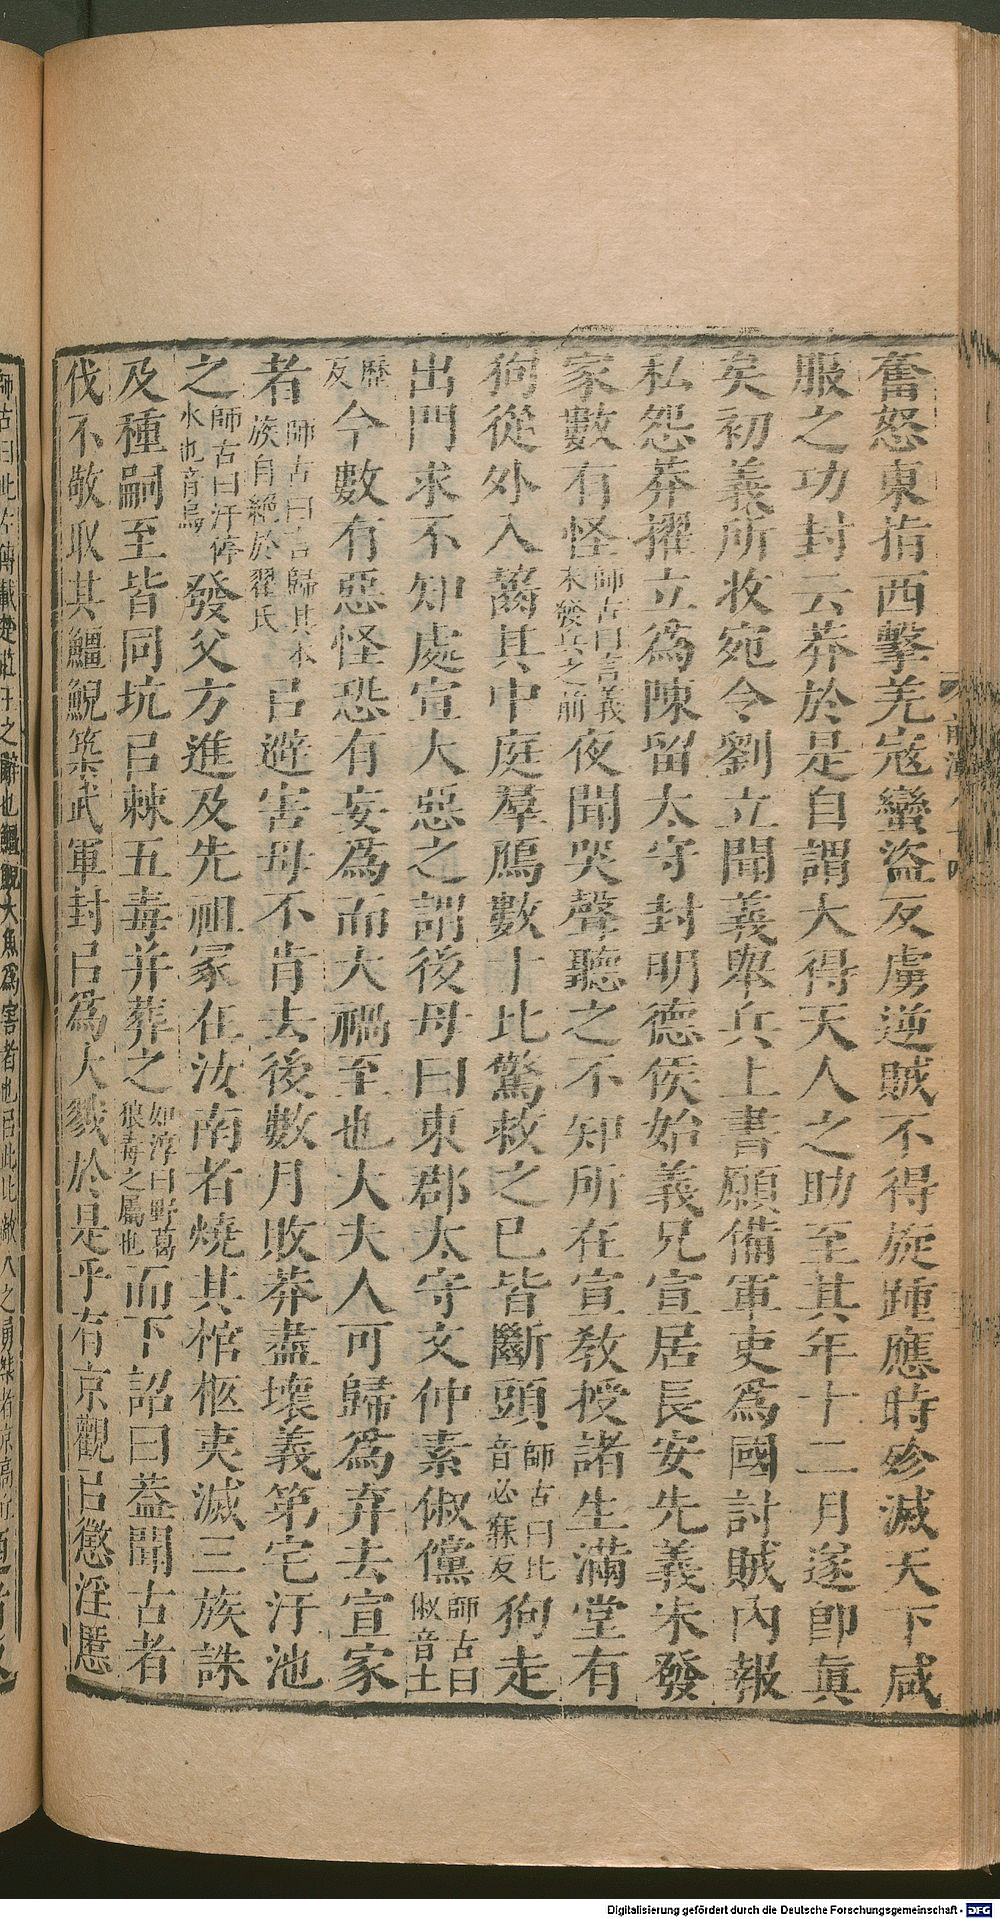 奮怒東指西擊羌宼蠻盜反虜逆賊不得旋踵應時殄滅天下咸
服之功封云莽於是自謂大得天人之助至其年十二月遂卽眞
矣初義所收宛令劉立聞義舉兵上書願備軍吏爲國討賊內報
私怨莽擢立爲陳留太守封明德侯始義兄宣居長安先義未發
家數有怪師古曰言義未發兵之前夜聞哭聲聽之不知所在宣敎授諸生滿堂有
狗從外入齧其中庭羣鴈數十比驚救之已皆斷頭師古曰比音必寐反狗走
出門求不知處宣大惡之謂後母曰東郡太守文仲素俶儻師古曰俶音土
歷反今數有惡怪恐有妄爲而大禍至也大夫人可歸爲弃去宣家
者師古曰言歸其本族自絕於翟氏㠯避害母不肯去後數月敗莽盡壞義第宅汙池
之師古曰汙停水也音烏發父方進及先祖冢在汝南者燒其棺柩夷滅三族誅
及種嗣至皆同坑㠯棘五毒并葬之如淳曰野葛狼毒之屬也而下詔曰蓋聞古者
伐不敬取其鱷鯢築武軍封㠯爲大戮於是乎有京觀㠯懲淫慝
師古曰此左傳載楚莊王之辭也 鯢大魚爲害者也㠯此比敵人之
Digitalisierung gefördert durch die Deutsche Forschungsgemeinschaft - DFG